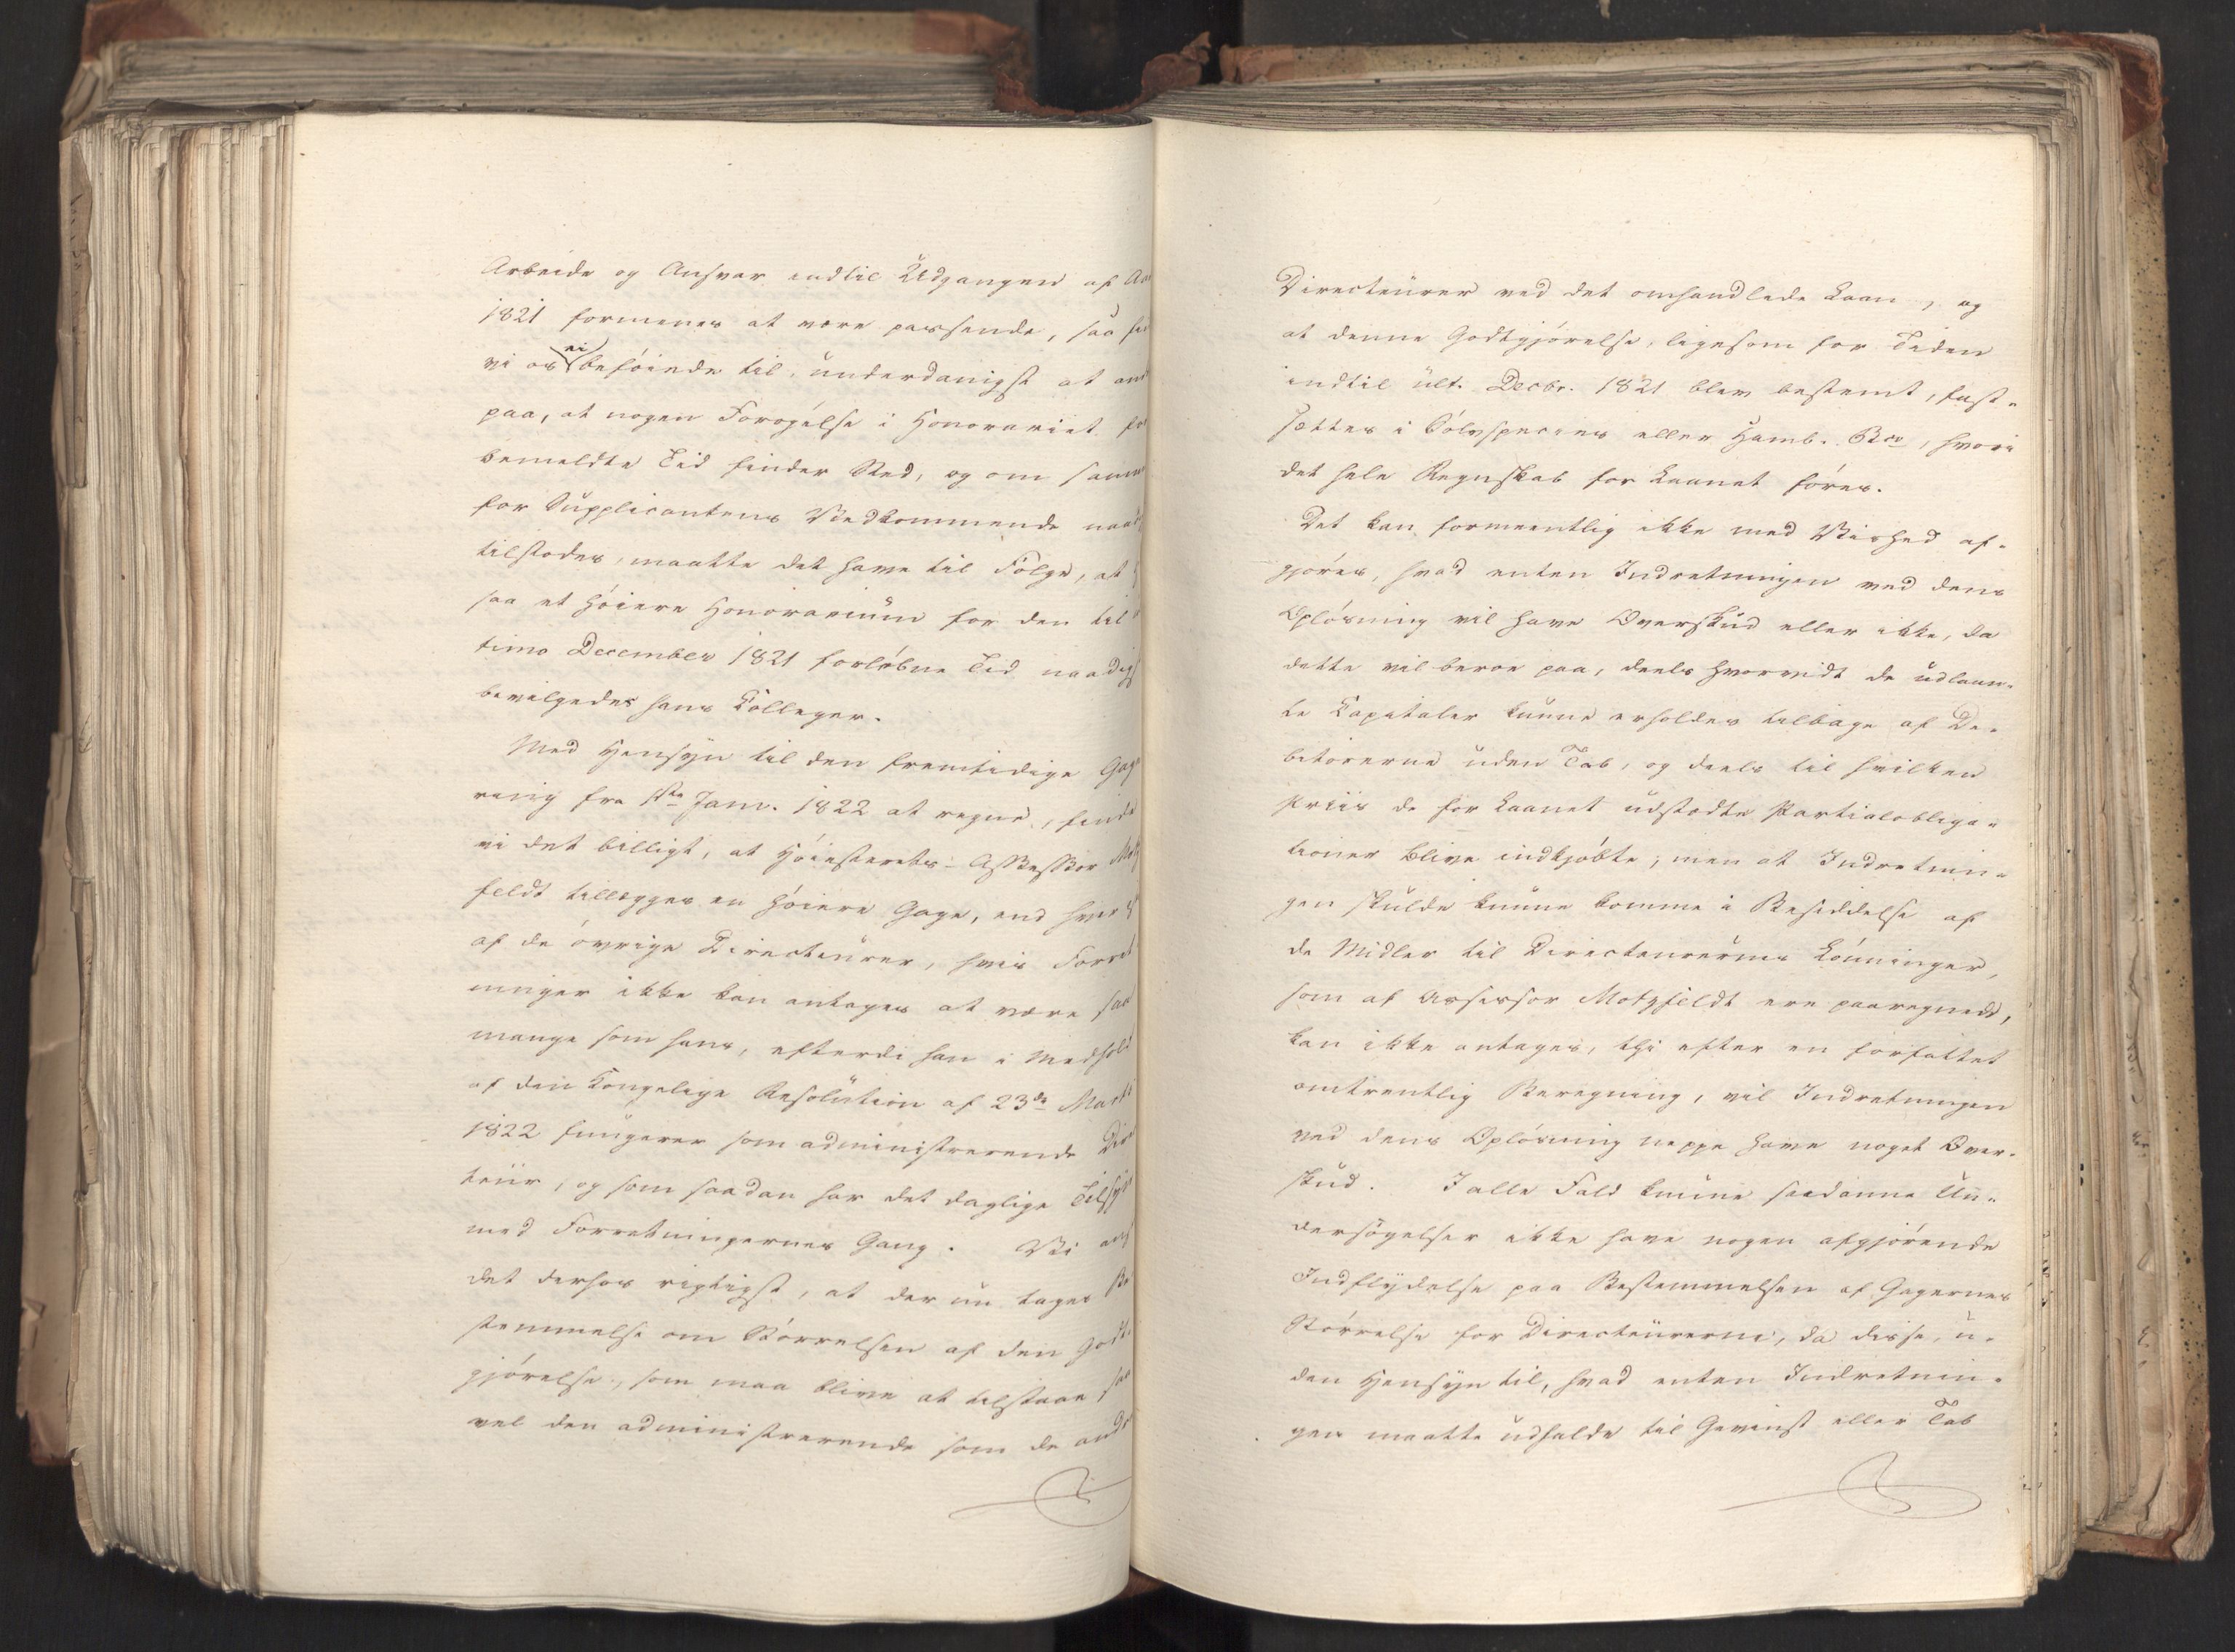 Arbeide og Ansvar indtil Udgangen af Aar
1821 formenes at være passende, saa fin
vi os ei beføiede til, underdanigst at an
paa, at nogen Forøgelse i Honorariet for
bemeldte Tid finder Sted, og om samme
for Supplicantens Vedkommende naad
tilstodes, maatte det have til Følge, at
saa et høiere Honorarium for den til ul
timo December 1821 forløbne Tid naadigst
bevilgedes hans Colleger.
Med Hensyn til den fremtidige Gage
ring fra 1ste Janr. 1822 at regne, finde
vi det billigt, at Høiesterets-Assessor Motz
feldt tillægges en høiere Gage, end hver
af de øvrige Directeurer, hvis Forret
ninger ikke kan antages at være saa
mange som hans, efterdi han i Medhold
af den Kongelige Resolution af 23de Marts
1822 fungerer som administrerende Direc
teur, og som saadan har det daglige Tilsyn
med Forretningernes Gang. Vi ans
det derhos rigtigst, at der nu tages Be
stemmelse om Størrelsen af den Godt-
gjørelse, som maa blive at tilstaae saa
vel den administrerende som de andre
Directeurer ved det omhandlede Laan, og
at denne Godtgjørelse, ligesom for Tiden
indtil ult. Decbr. 1821 blev bestemt, fast-
sættes i Sølvspecies eller Hamb. Bco, hvori
det hele Regnskab for Laanet føres.
Det kan formeentlig ikke med Vished af-
gjøres, hvad enten Indretningen ved dens
Opløsning vil have Overskud eller ikke, da
dette vil beroe paa, deels hvorvidt de udlaan-
te Capitaler kunne erholdes tilbage af De-
bitorerne uden Tab, og deels til hvilken
Priis de for Laanet udstædte Partialobliga-
tioner blive indkjøbte; men at Indretnin-
gen skulde kunne komme i Besiddelse af
de Midler til Directeurernes Lønninger,
som af Assessor Motzfeldt ere paaregnede,
kan ikke antages, thi efter en forfattet
omtrentlig Beregning, vil Indretningen
ved dens Opløsning neppe have noget Over-
skud. I alle Fald kunne saadanne Un-
dersøgelser ikke have nogen afgjørende
Indflydelse paa Bestemmelsen af Gagernes
Størrelse for Directeurerne, da disse, u-
den Hensyn til, hvad enten Indretnin-
gen maatte udfalde til Gevinst eller Tab